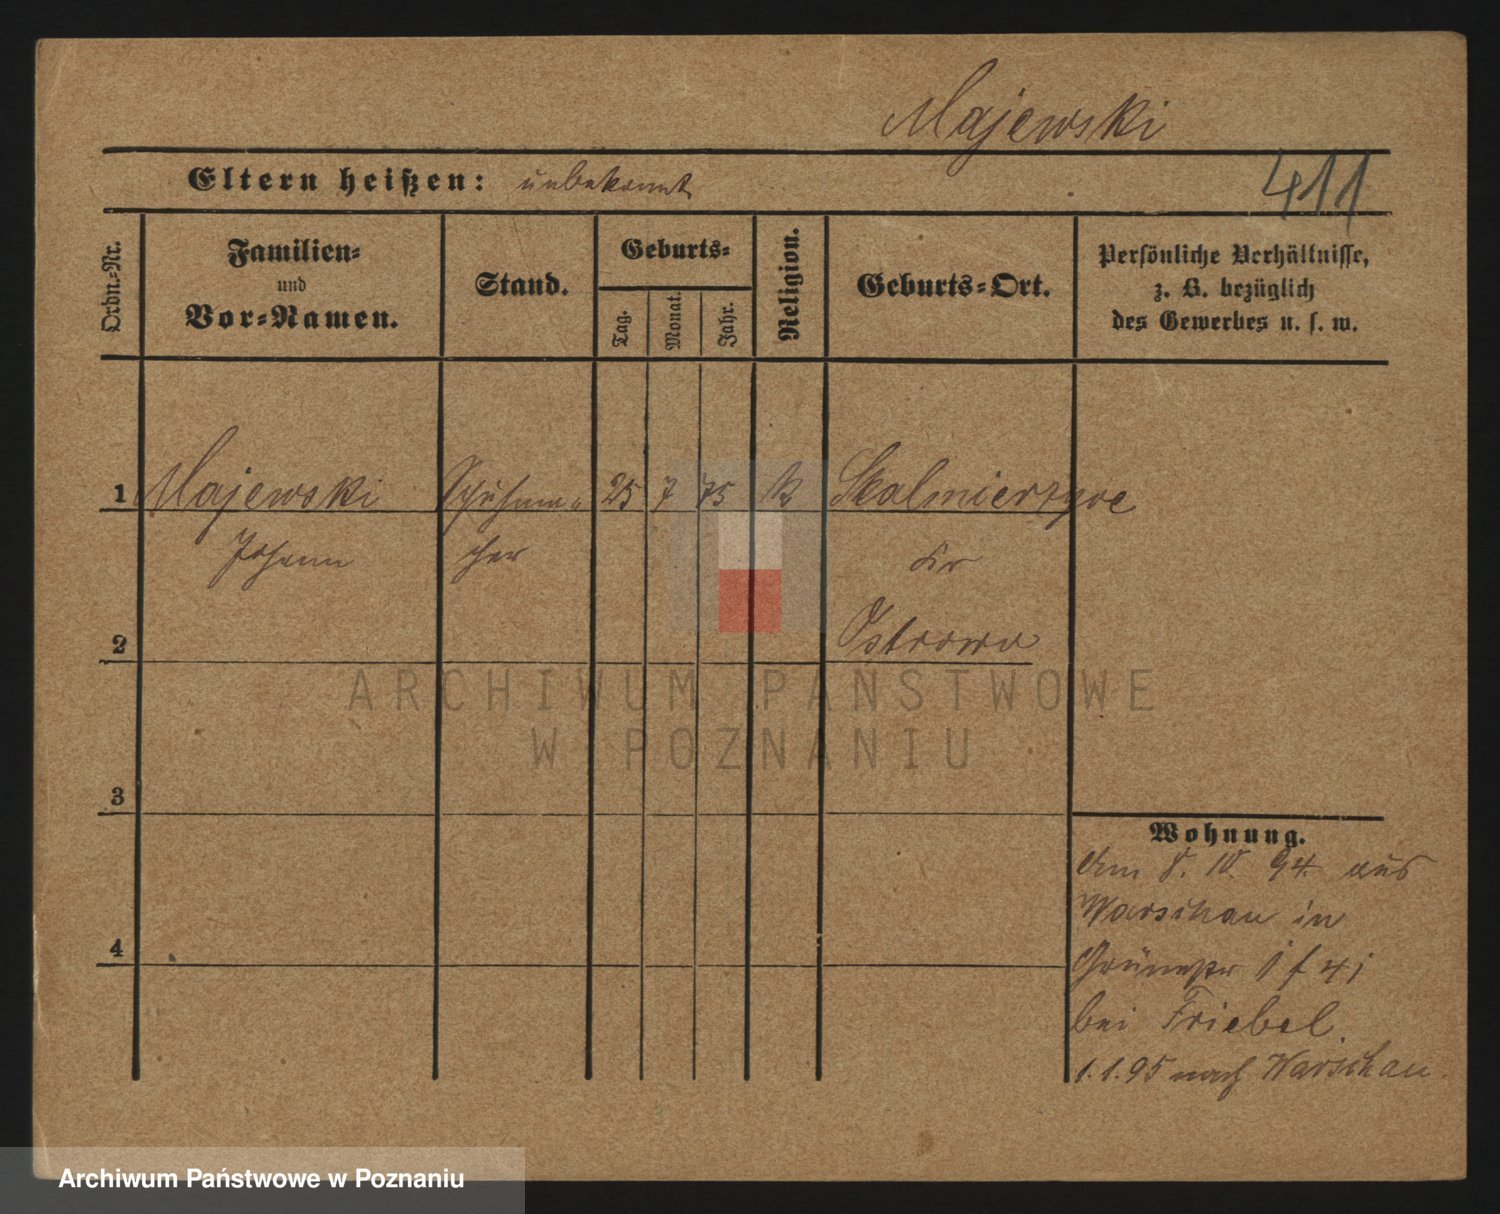 Majewski
411
Eltern heißen: unbekannt
Ordn.=Nr.
Familien=
und
Vor=Namen.
Stand.
Geburts=
Tag.
Monat.
Jahr.
Religion.
Geburts=Ort.
Persönliche Verhältnisse,
z. B. bezüglich
des Gewerbes u. s. w.
1 Majewski Schuhma= 25 7 75 k Skalmierzyce
Johann cher Kr
2 Ostrowo
ARCHIWUM PAŃSTWOWE
W POZNANIU
3
Wohnung.
8. 10. 94. aus
Warschau in
4
bei Friebel
1.1.95 nach Warschau.
Archiwum Państwowe w Poznaniu